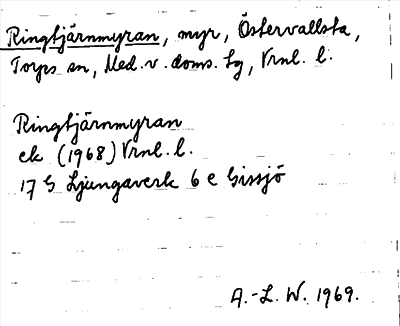 Ringtjärnmyran, myr, Östervallsta,
Torps sn, Med. v. doms. lg, Vrnl. l.
Ringtjärnmyran
ek (1968) Vrnl. l.
17 G Ljungaverk 6 e Gissjö
A.-L. W. 1969.